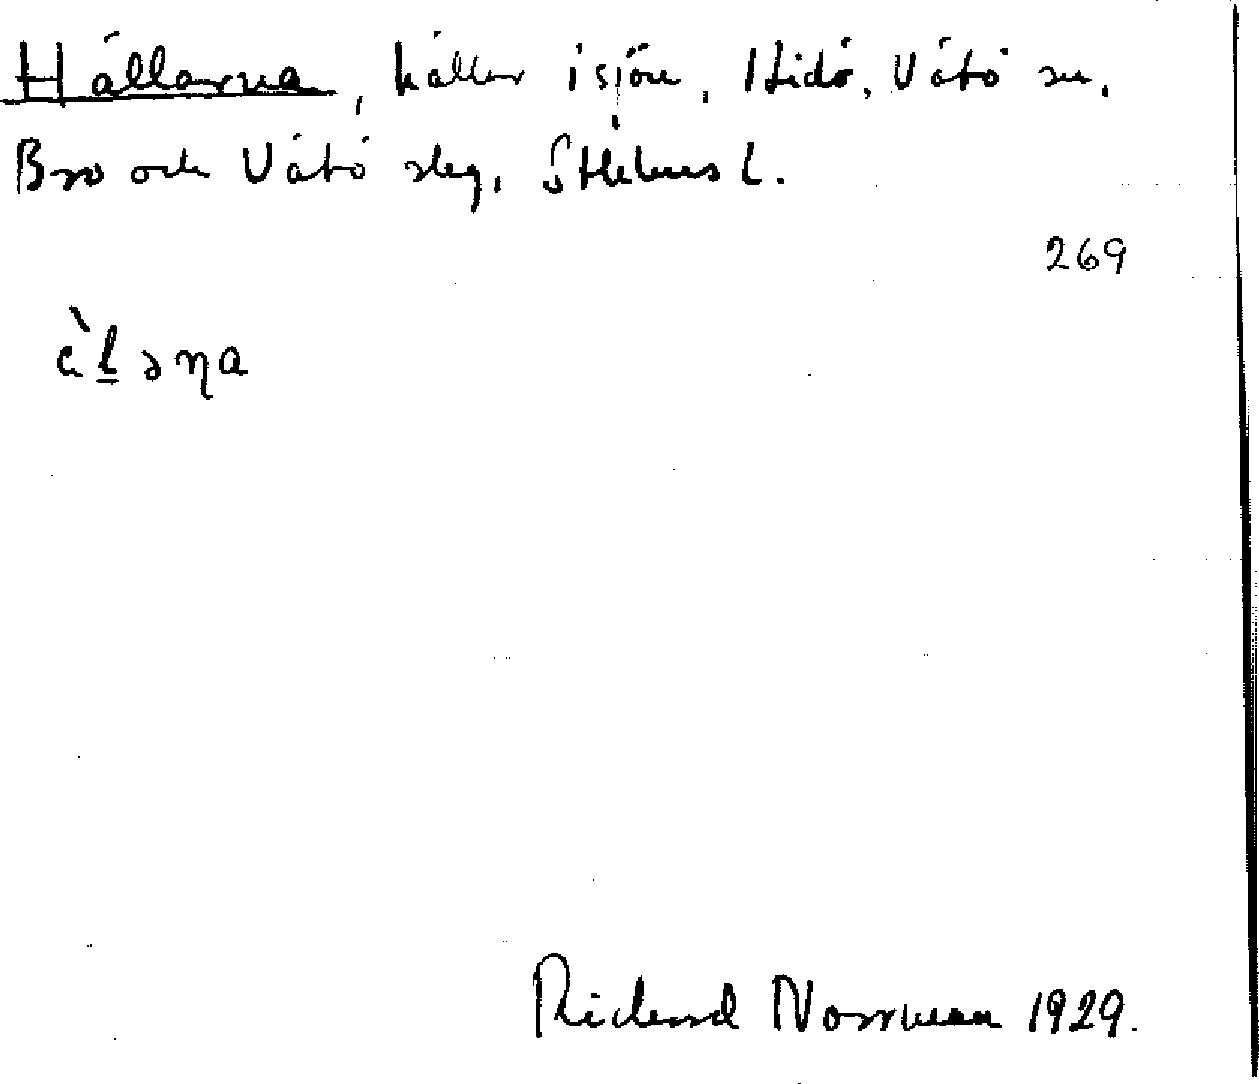 Hällarna, hällar i sjön, Hidö, Vätö sn.
Bro och Vätö slg, Sthlms l.
269
Richard Norrman 1929.